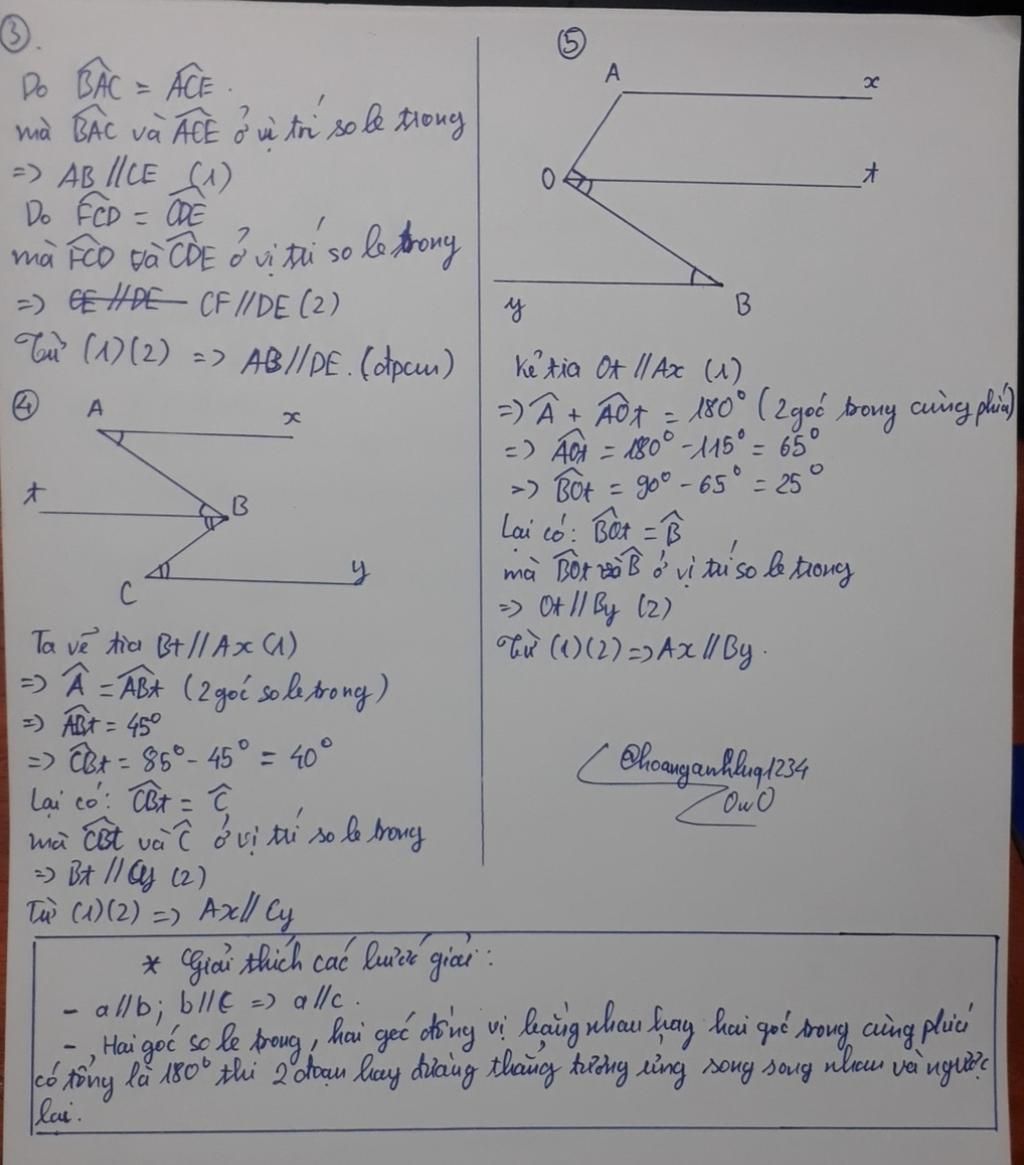 ③.
Do B̂AC = ÂCE.
mà B̂AC và ÂCE ở vị trí so le trong
=> AB // CE (1)
Do F̂CD = ĈDE
mà F̂CD và ĈDE ở vị trí so le trong
=> CE // DE CF // DE (2)
Từ (1)(2) => AB // DE. (đpcm)
④
A
x
t
B
C
y
Ta vẽ tia Bt // Ax (1)
=> Â = ÂBt (2 góc so le trong)
=> ÂBt = 45°
=> ĈBt = 85° - 45° = 40°
Lại có: ĈBt = Ĉ
mà ĈBt và Ĉ ở vị trí so le trong
=> Bt // Cy (2)
Từ (1)(2) => Ax // Cy
⑤
A
x
O
t
y
B
Kẻ tia Ot // Ax (1)
=> Â + ÂOt = 180° (2 góc trong cùng phía)
=> ÂOt = 180° - 115° = 65°
=> B̂Ot = 90° - 65° = 25°
Lại có: B̂Ot = B̂
mà B̂Ot và B̂ ở vị trí so le trong
=> Ot // By (2)
Từ (1)(2) => Ax // By.
@hoanganhhuq1234
OwO
* Giải thích các bước giải:
- a//b; b//c => a//c.
-, Hai góc so le trong, hai góc đồng vị bằng nhau hay hai góc trong cùng phía
có tổng là 180° thì 2 đoạn hay đường thẳng tương ứng song song nhau và ngược
lại.